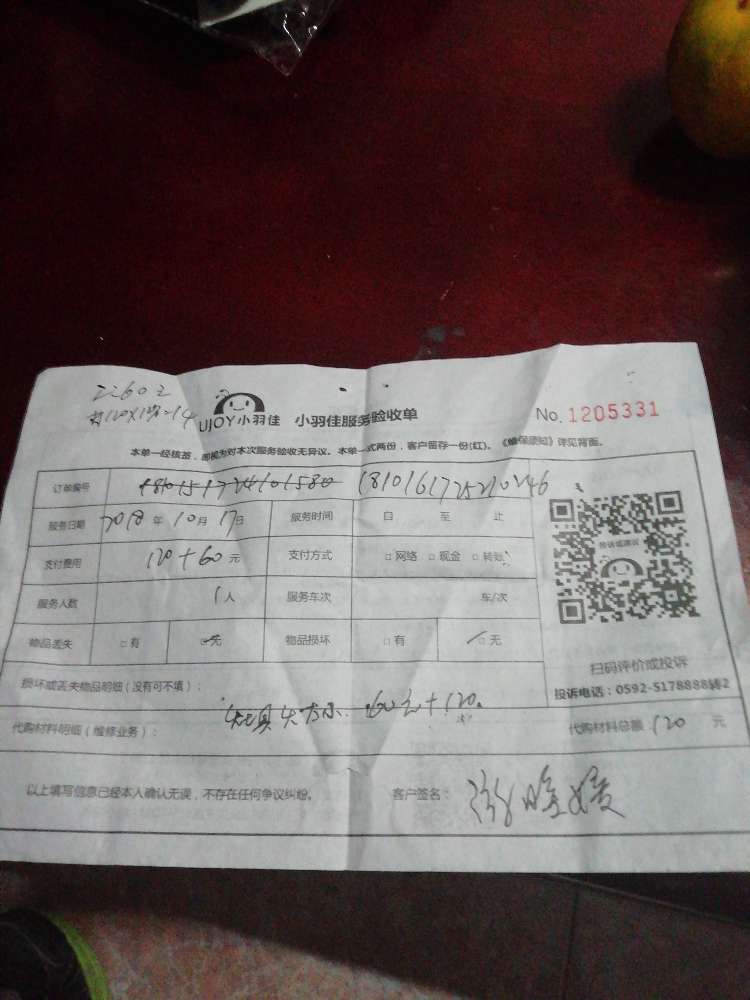 UJOY小羽佳 小羽佳服务验收单 No. 1205331
本单一经核签，即视为对本次服务验收无异议。本单一式两份，客户留存一份(红)。《维保须知》详见背面。
订单编号 1810161725210246
服务日期 2018年10月17日 服务时间 自 至 止
支付费用 120+60元 支付方式 □网络 □现金 □转账
服务人数 1人 服务车次 车/次
物品丢失 □有 □无 物品损坏 □有 □无
投诉或建议
扫码评价或投诉
损坏或丢失物品明细（没有可不填）：
投诉电话：0592-5178888转2
代购材料明细（维修业务）： 60元+120。 代购材料总额 120 元
以上填写信息已经本人确认无误，不存在任何争议纠纷。 客户签名：